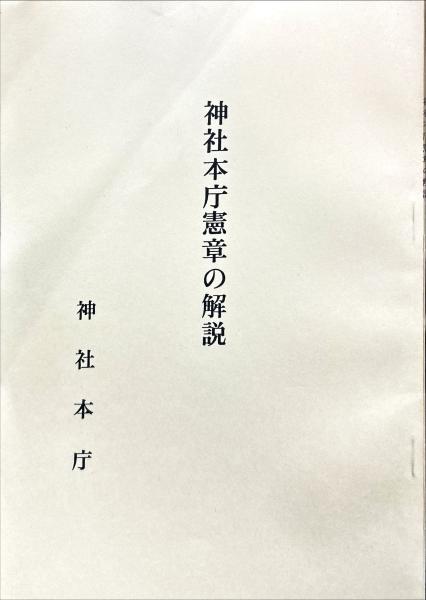 神社本庁憲章の解説
神社本庁